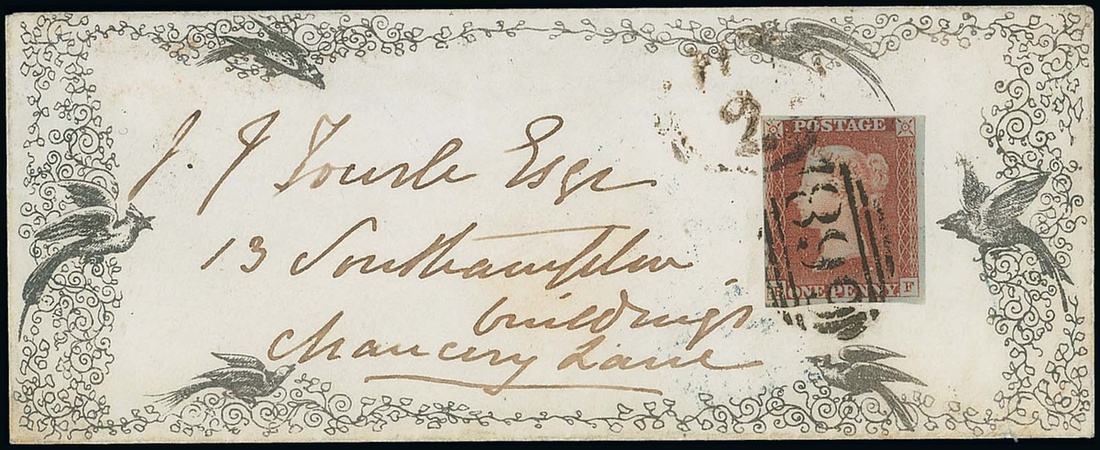 J. J. Tourle Esqr
13 Southampton
buildings
Chancery Lane
2
POSTAGE
ONE PENNY F